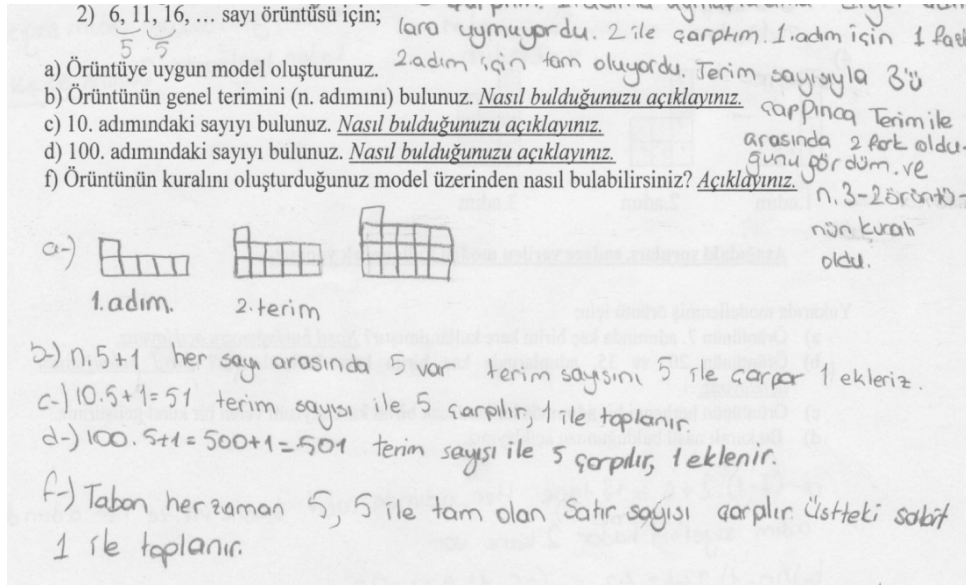 2) 6, 11, 16, … sayı örüntüsü için;
5 5
a) Örüntüye uygun model oluşturunuz.
b) Örüntünün genel terimini (n. adımını) bulunuz. Nasıl bulduğunuzu açıklayınız.
c) 10. adımındaki sayıyı bulunuz. Nasıl bulduğunuzu açıklayınız.
d) 100. adımındaki sayıyı bulunuz. Nasıl bulduğunuzu açıklayınız.
f) Örüntünün kuralını oluşturduğunuz model üzerinden nasıl bulabilirsiniz? Açıklayınız.
lara uymuyordu. 2 ile çarptım. 1.adım için 1
2.adım için tam oluyordu. Terim sayısıyla 3'ü
çarpınca Terim ile
arasında 2 fark oldu-
ğunu gördüm. ve
n.3-2 örüntü-
nün kuralı
oldu.
a-)
1.adım. 2.terim
b-) n.5+1 her sayı arasında 5 var terim sayısını 5 ile çarpar 1 ekleriz.
c-) 10.5+1=51 terim sayısı ile 5 çarpılır, 1 ile toplanır.
d-) 100.5+1=500+1=501 terim sayısı ile 5 çarpılır, 1 eklenir.
f-) Taban her zaman 5, 5 ile tam olan satır sayısı çarpılır. Üstteki sabit
1 ile toplanır.